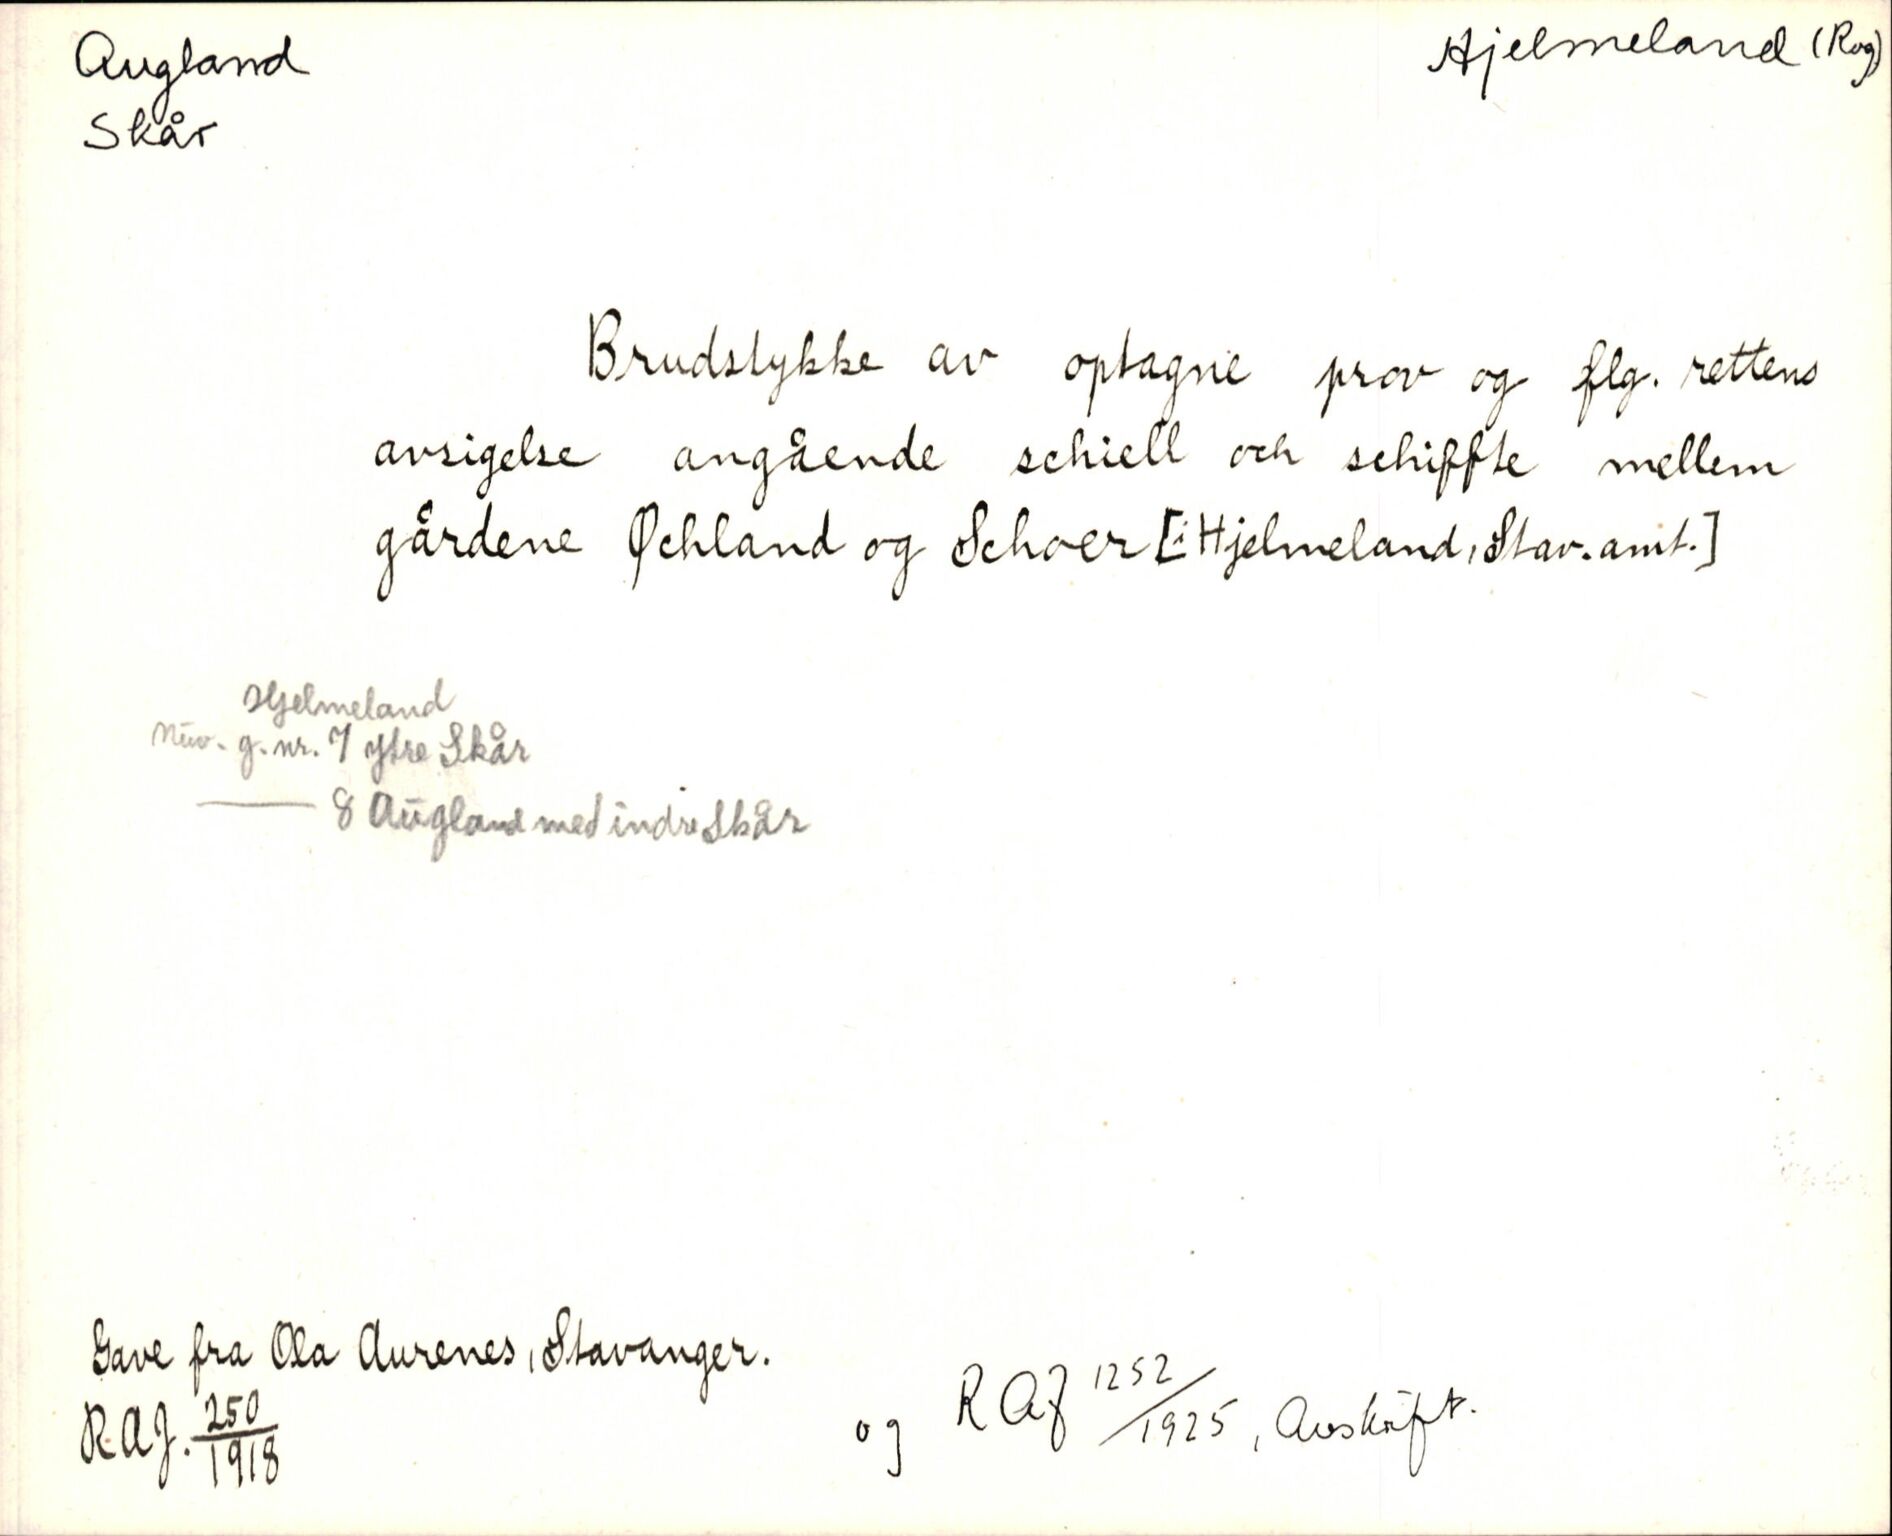 Augland
Skår
Hjelmeland (Rog)
Brudstykke av optagne prov og flg. rettens
avsigelse angående schiell och schiffte mellem
gårdene Øchland og Schoer [i Hjelmeland, Stav. amt.]
Hjelmeland
Nuv. g. nr. 7 ytre Skår
—— 8 Augland med indre Skår
Gave fra Ola Aurenes, Stavanger.
R.A.J. 250/1918
og RAJ 1252/1925, Avskrift.